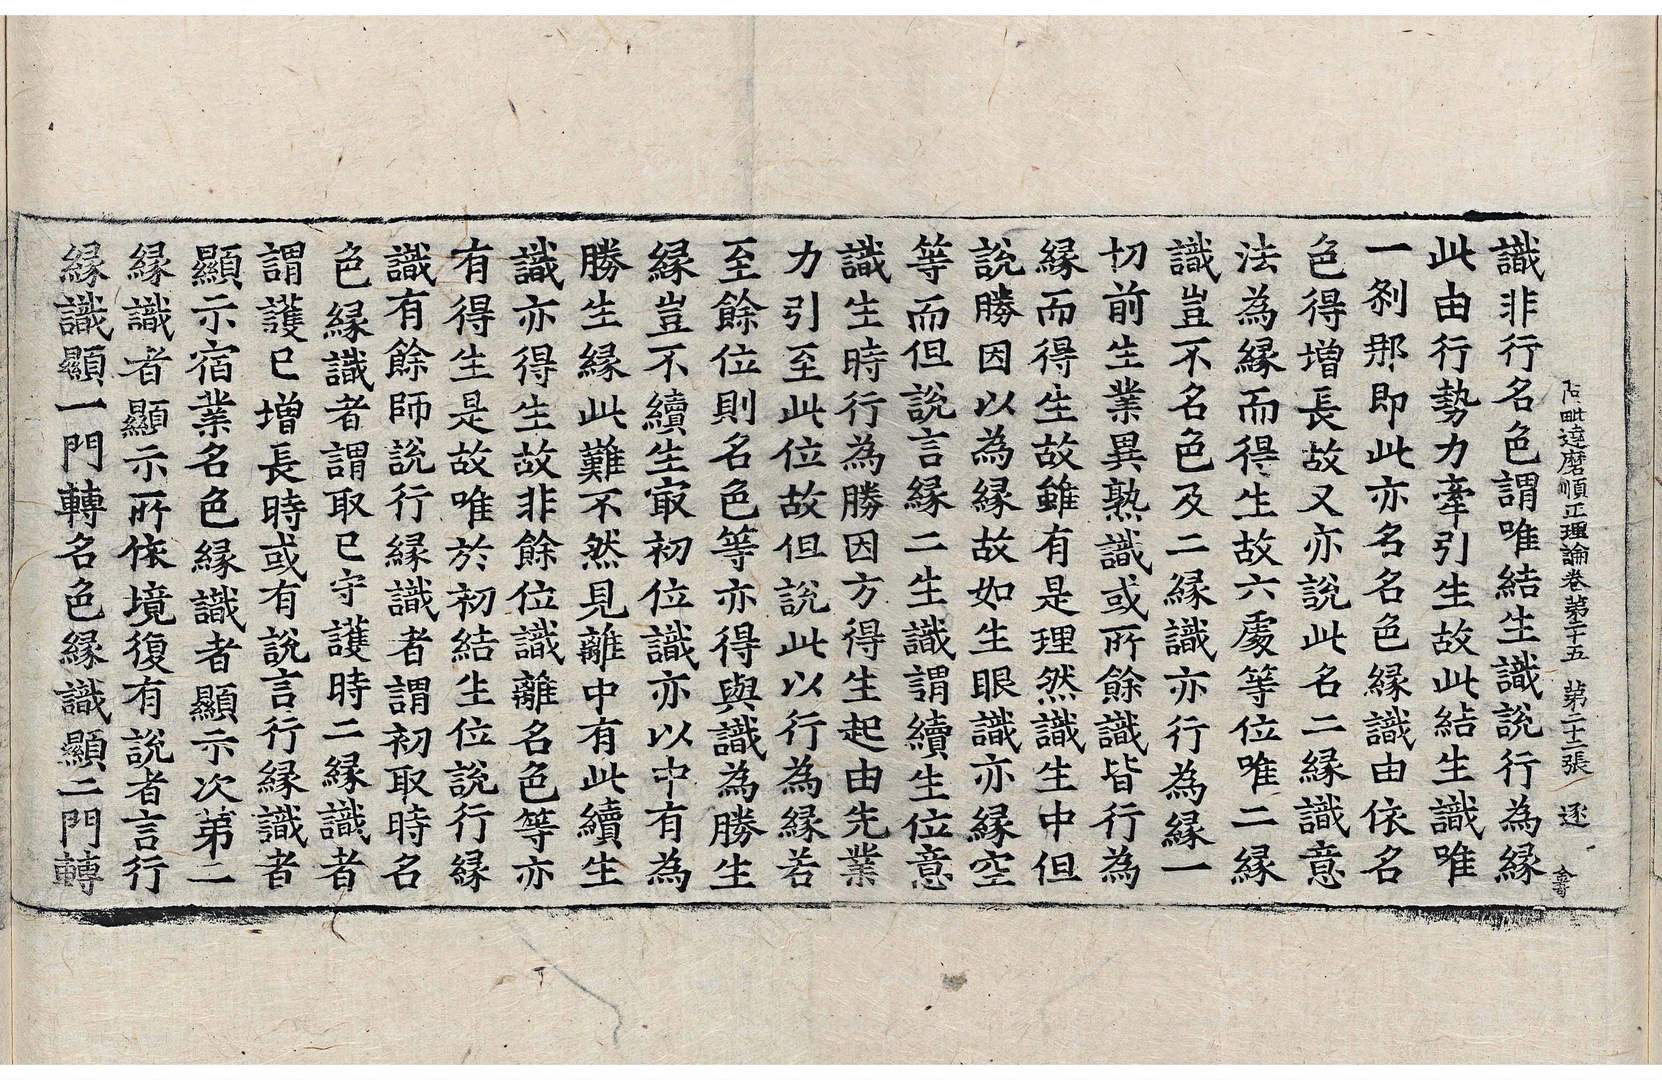 阿毗達磨順正理論卷第二十五 第二十二張 逐
識非行名色謂唯結生識說行為緣
此由行勢力牽引生故此結生識唯
一剎那即此亦名名色緣識由依名
色得增長故又亦說此名二緣識意
法為緣而得生故六處等位唯二緣
識豈不名色及二緣識亦行為緣一
切前生業異熟識或所餘識皆行為
緣而得生故雖有是理然識生中但
說勝因以為緣故如生眼識亦緣空
等而但說言緣二生識謂續生位意
識生時行為勝因方得生起由先業
力引至此位故但說此以行為緣若
至餘位則名色等亦得與識為勝生
緣豈不續生㝡初位識亦以中有為
勝生緣此難不然見離中有此續生
識亦得生故非餘位識離名色等亦
有得生是故唯於初結生位說行緣
識有餘師說行緣識者謂初取時名
色緣識者謂取已守護時二緣識者
謂護已增長時或有說言行緣識者
顯示宿業名色緣識者顯示次第二
緣識者顯示所依境復有說者言行
緣識顯一門轉名色緣識顯二門轉